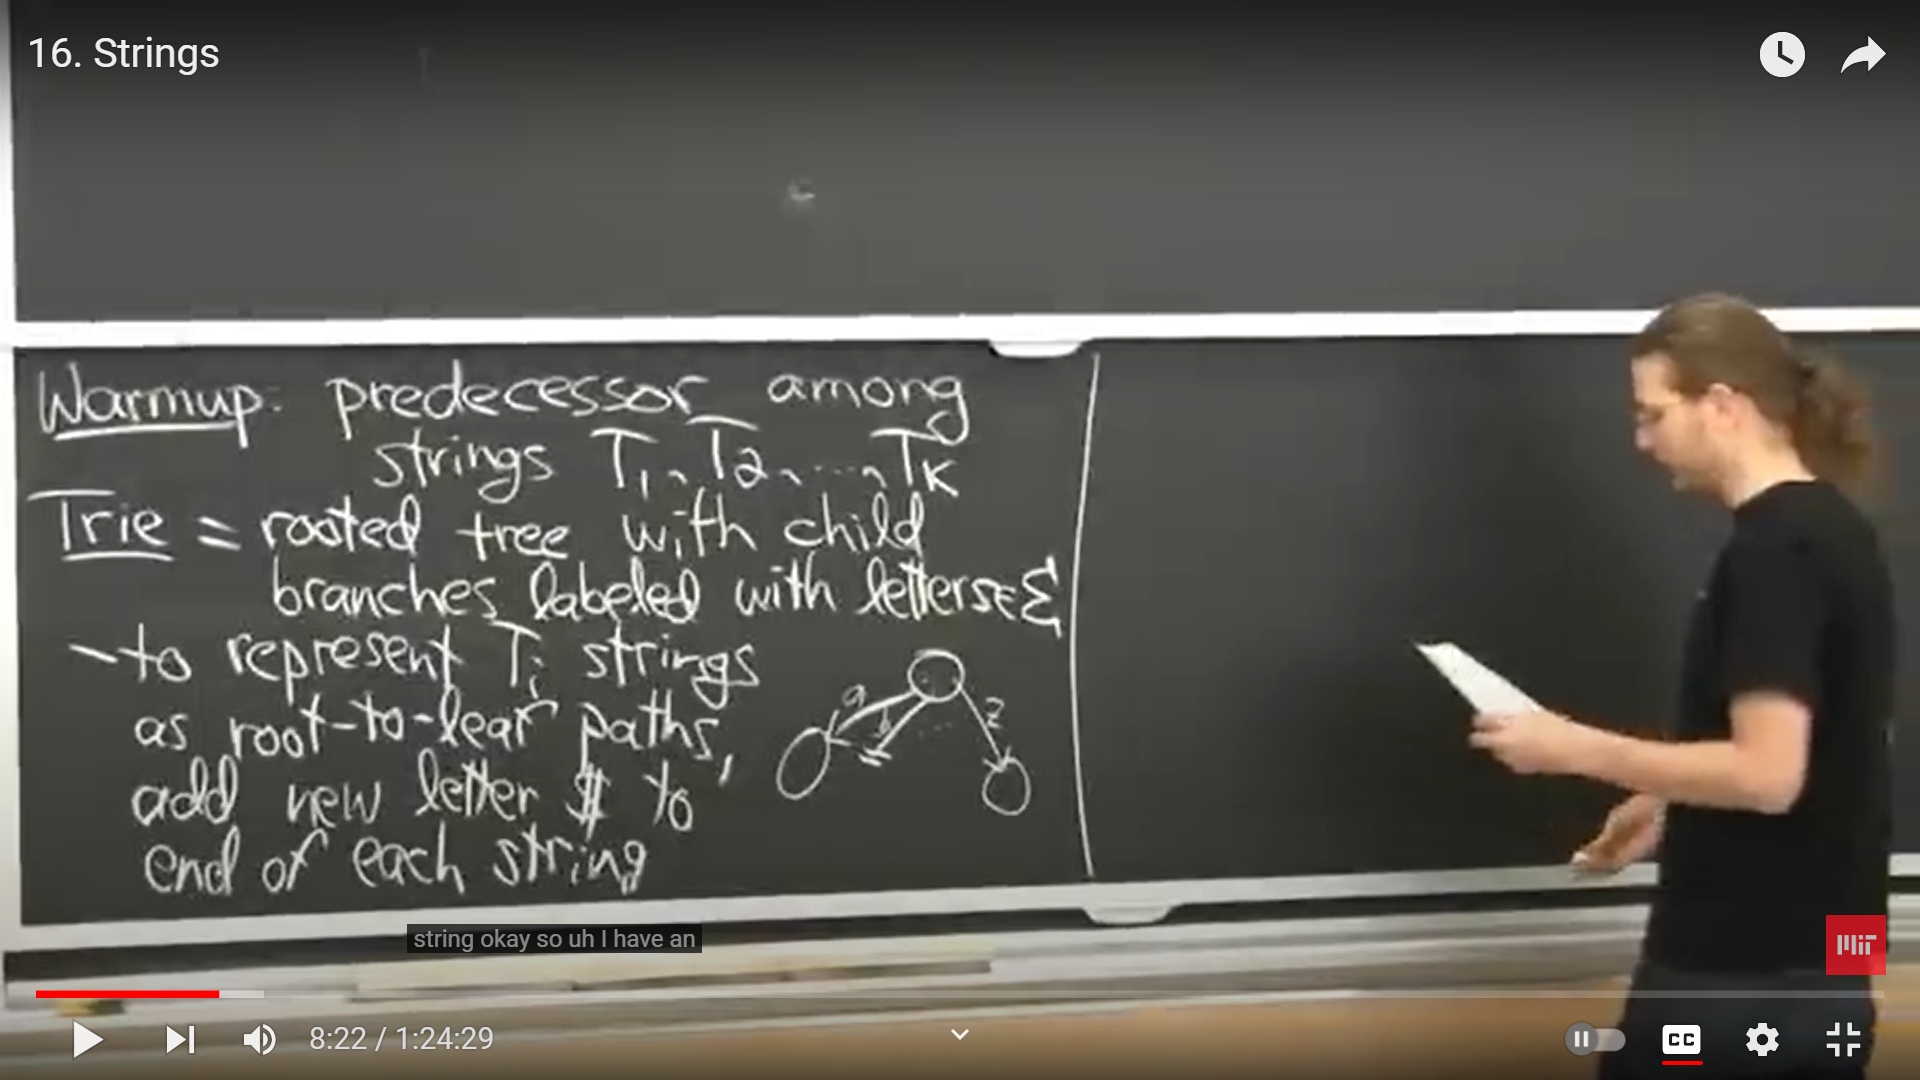 16. Strings
Warmup: predecessor among
strings T1, T2, ...., TK
Trie = rooted tree with child
branches labeled with letters ∈ Σ
- to represent Ti strings
as root-to-leaf paths,
add new letter $ to
end of each string
a
b
...
z
string okay so uh I have an
MIT
8:22 / 1:24:29
CC